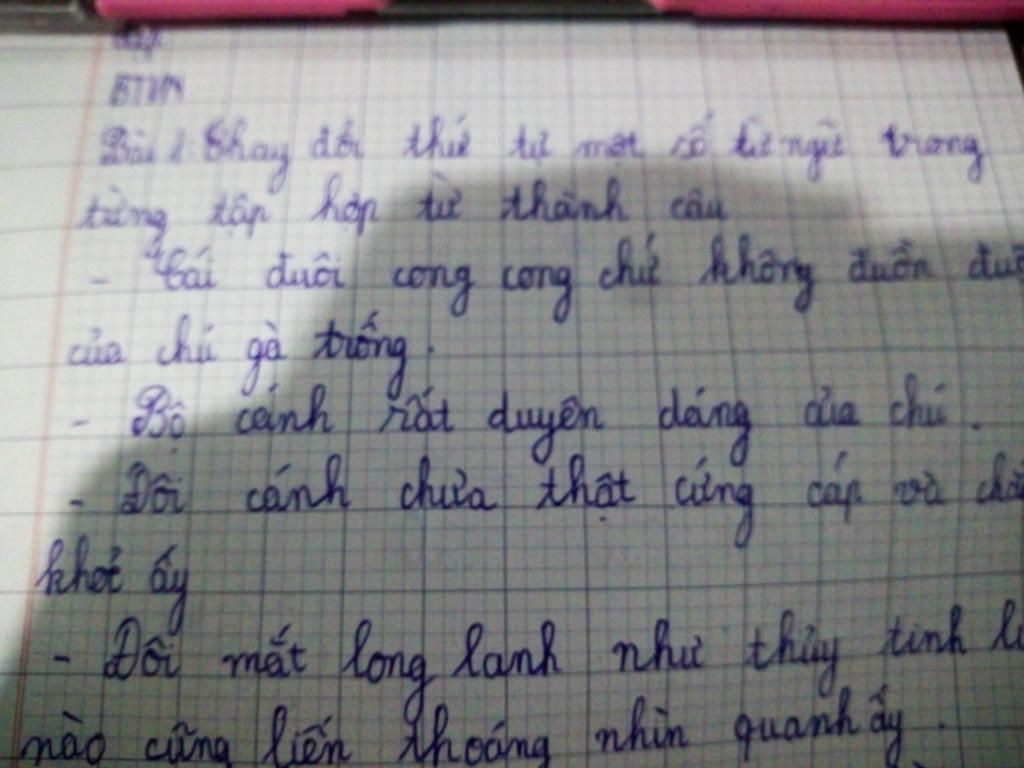 BTVN
Bài 1: Thay đổi thứ tự một số từ ngữ trong
từng tập hợp từ thành câu
- Cái đuôi cong cong chứ không đuồn
của chú gà trống.
- Bộ cánh rất duyên dáng của chú.
- Đôi cánh chưa thật cứng cáp và
khoẻ ấy
- Đôi mắt long lanh như thủy tinh
nào cũng liến thoáng nhìn quanh ấy.